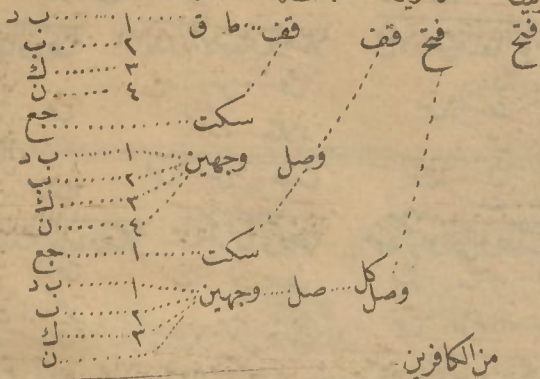 فتح فتح قف قف ... ما ق ... ١ ... ب د
٢ ... ب
٣ ... ك
٤ ... ن
سكت ... جع
وصل وجهين ... ١ ... ب د
٢ ... ب
٣ ... ك
٤ ... ن
سكت ... ١ ... جع
وصل كل ... صل ... وجهين ... ١ ... ب د
٢ ... ب
٣ ... ك
ن
من الكافرين